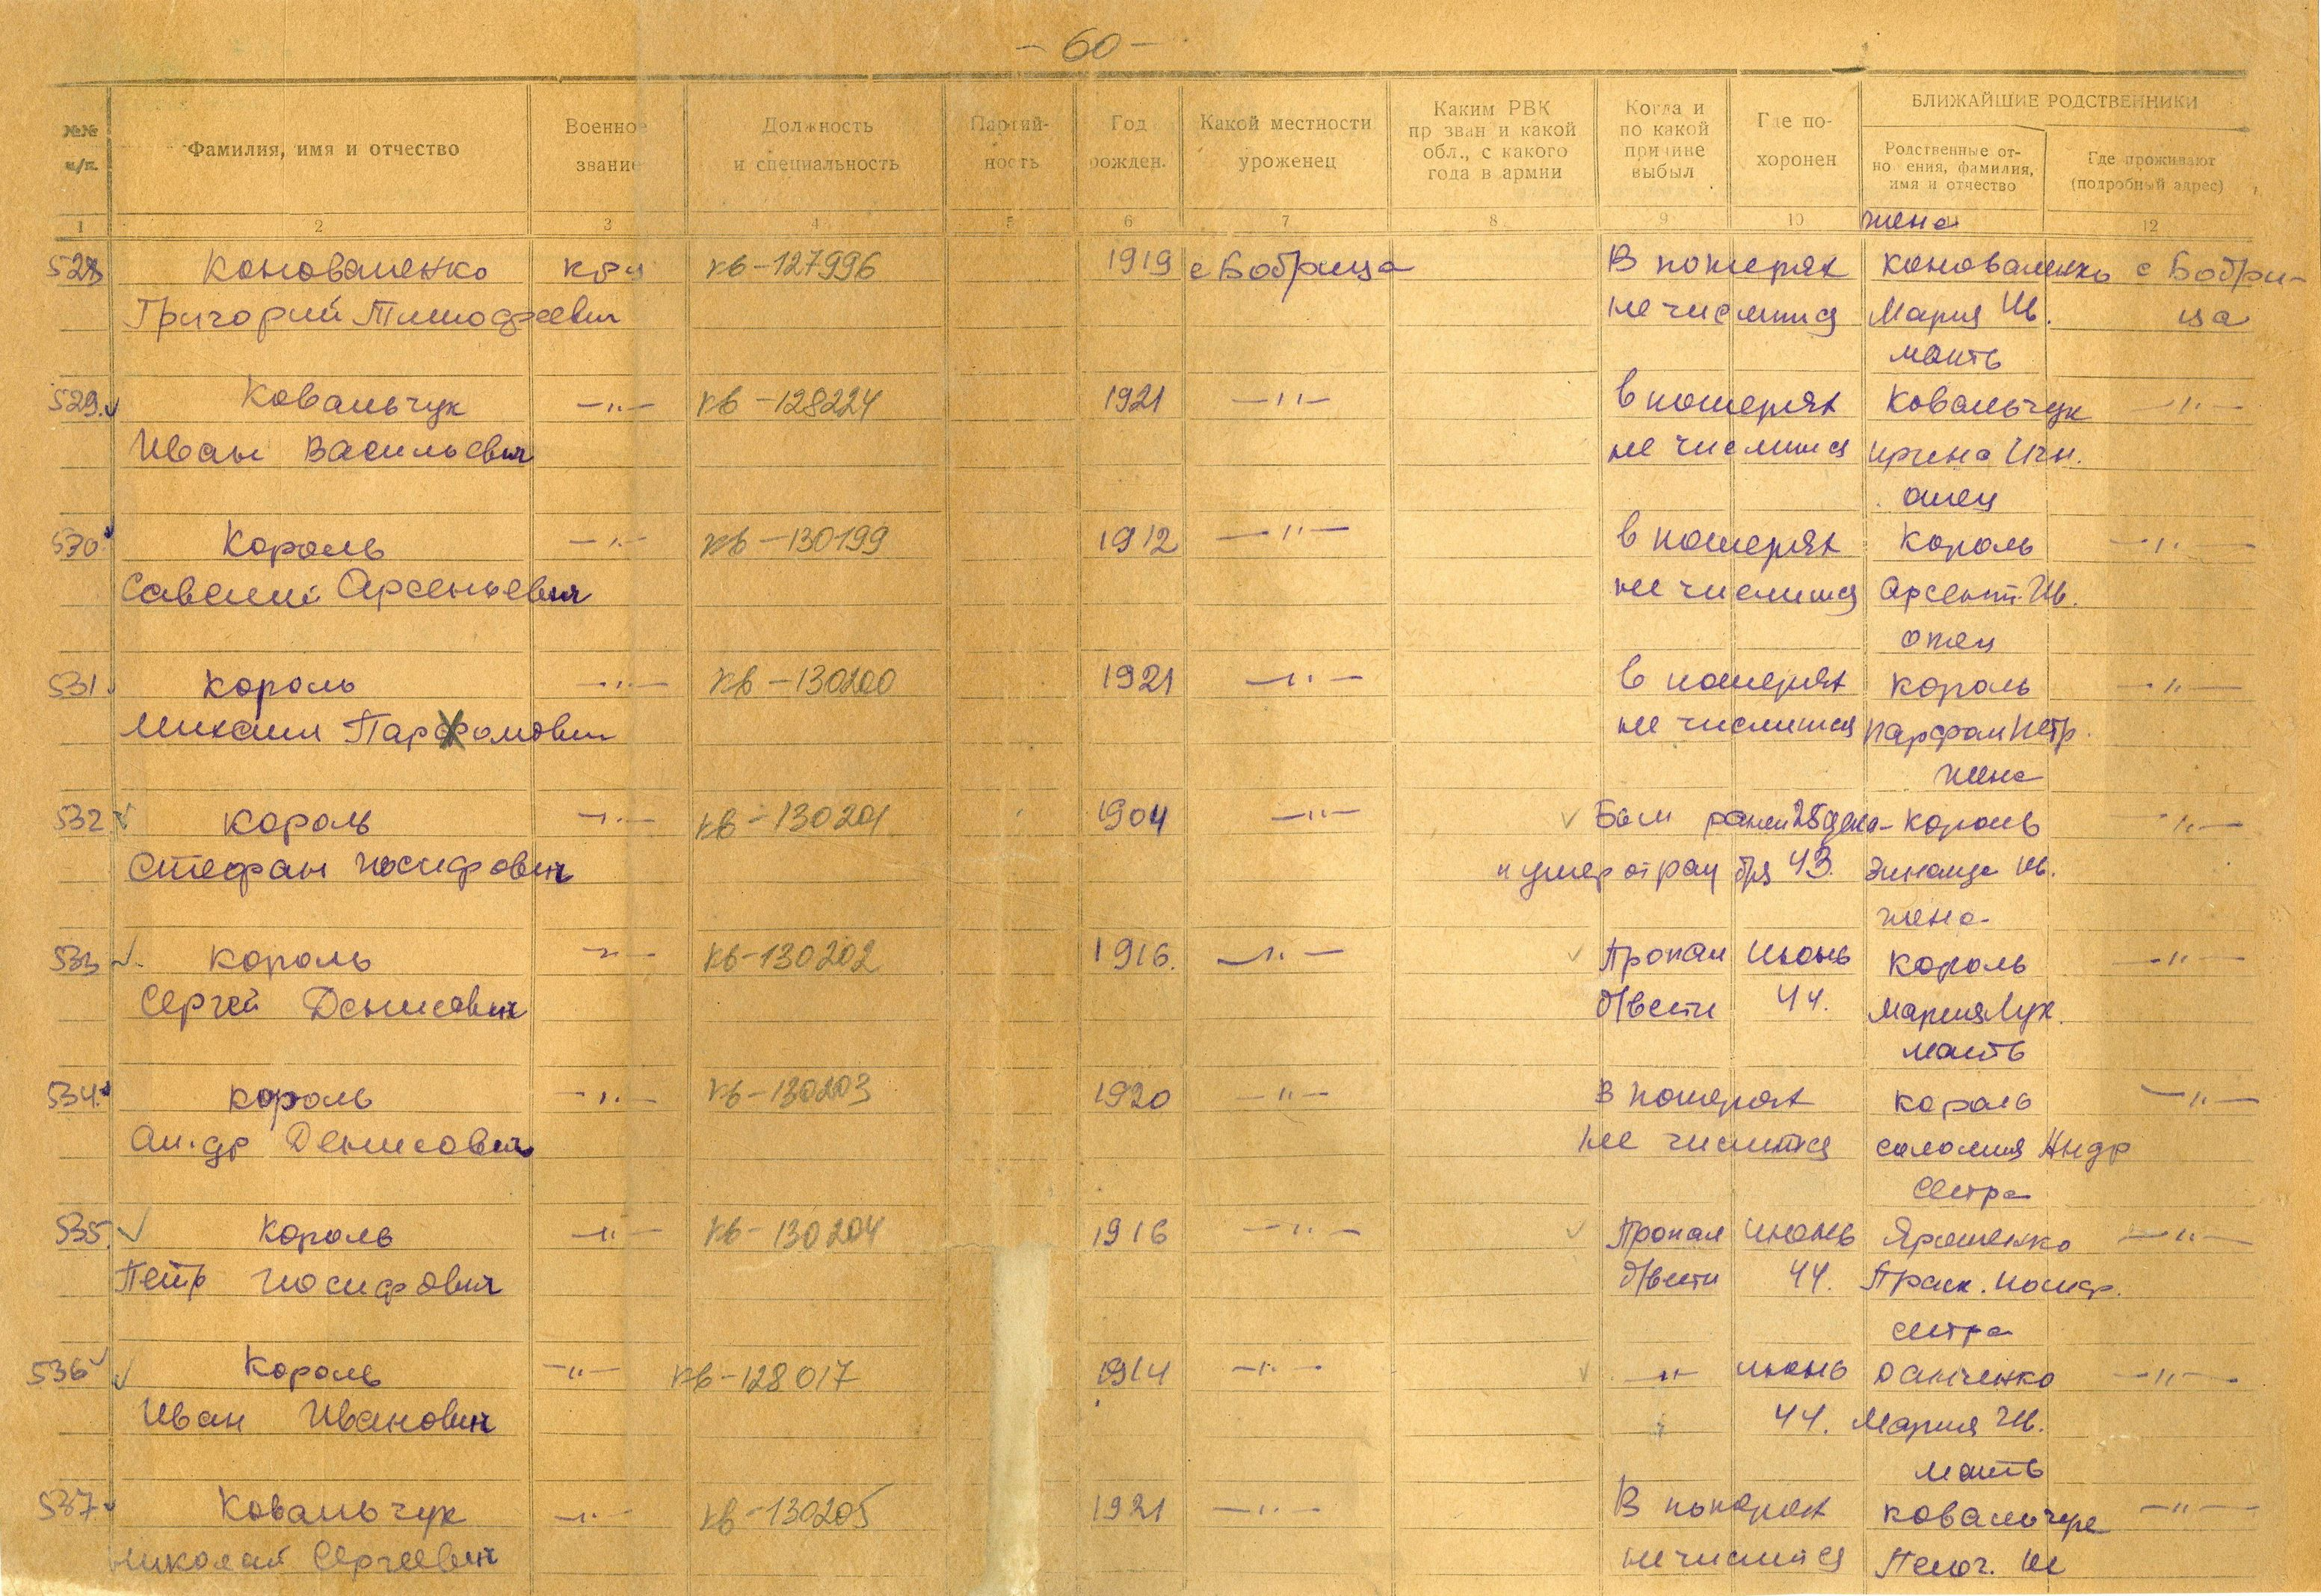 - 60 -
№№ п/п.
Фамилия, имя и отчество
Военное звание
Должность и специальность
Партий- ность
Год рожден.
Какой местности уроженец
Каким РВК пр зван и какой обл., с какого года в армии
Когда и по какой причине выбыл
Где по- хоронен
БЛИЖАЙШИЕ РОДСТВЕННИКИ
Родственные от- но ения, фамилия, имя и отчество
Где проживают (подробный адрес)
1 2 3 4 5 6 7 8 9 10 12
жена
528 Коноваленко кр-ц кв-127996 1919 с Бобрица В потерях Коноваленко с Бобри-
Григорий Тимофеевич не числится Мария Ив. ца
мать
529. Ковальчук —"— кв-128224 1921 —"— в потерях Ковальчук —"—
Иван Васильевич не числится Ирина Игн.
отец
530. Король —"— кв-130199 1912 —"— в потерях Король —"—
Савелий Арсеньевич не числится Арсент. Ив.
отец
531. Король —"— кв-130200 1921 —"— в потерях Король —"—
Михаил Парфомович не числится Парфом Петр.
жена
532. Король —"— кв-130201 1904 —"— Был ранен 28 дека- Король —"—
Стефан Иосифович и умер от ран бря 43. Зинаида Ив.
жена
533 Король —"— кв-130202 1916. —"— Пропал Июнь Король —"—
Сергей Денисович б/вести 44. Мария Лук.
мать
534. Король —"— кв-130203 1920 —"— В потерях Король —"—
Ан-др Денисович не числится Саломия Андр
сестра
535. Король —"— кв-130204 1916 —"— Пропал июнь Ярошенко —"—
Петр Иосифович б/вести 44. Праск. Иосиф.
сестра
536 Король —"— кв-128017 1914 —"— —"— июнь Данченко —"—
Иван Иванович 44. Мария Ив.
мать
537. Ковальчук —"— кв-130205 1921 —"— В потерях Ковальчук —"—
Николай Сергеевич не числится